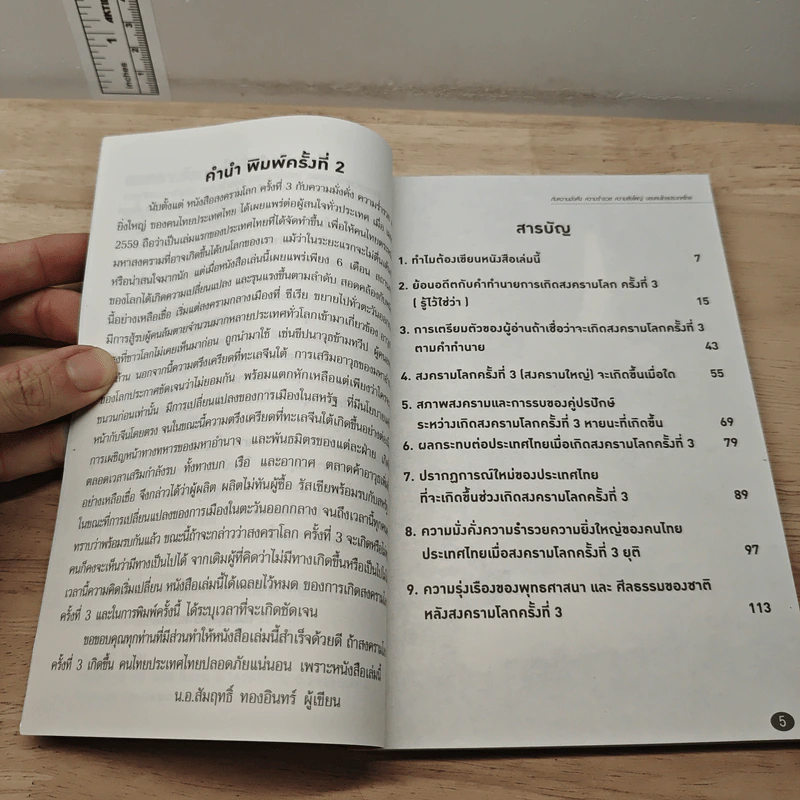 inches
1
คำนำ พิมพ์ครั้งที่ 2
นับตั้งแต่ หนังสือสงครามโลก ครั้งที่ 3 กับความมั่งคั่ง ความร่ำรวย
ยิ่งใหญ่ ของคนไทยประเทศไทย ได้เผยแพร่ต่อผู้สนใจทั่วประเทศ เมื่อ
2559 ถือว่าเป็นเล่มแรกของประเทศไทยที่ได้จัดทำขึ้น เพื่อให้คนไทย
มหาสงครามที่อาจเกิดขึ้นได้บนโลกของเรา แม้ว่าในระยะแรกจะไม่ตื่นเต้น
หรือน่าสนใจมากนัก แต่เมื่อหนังสือเล่มนี้เผยแพร่เพียง 6 เดือน
ของโลกได้เกิดความเปลี่ยนแปลง และรุนแรงขึ้นตามลำดับ สอดคล้องกับ
นี้อย่างเหลือเชื่อ เริ่มแต่สงครามกลางเมืองที่ ซีเรีย ขยายไปทั่วตะวันออก
มีการสู้รบผู้คนล้มตายจำนวนมากหลายประเทศทั่วโลกเข้ามาเกี่ยวข้อง
ที่ชาวโลกไม่เคยเห็นมาก่อน ถูกนำมาใช้ เช่นขีปนาวุธข้ามทวีป
นอกจากนี้ความตึงเครียดที่ทะเลจีนใต้ การเสริมอาวุธของมหาอำนาจ
ของโลกประกาศชัดเจนว่าไม่ยอมกัน พร้อมแตกหักเหลือแต่เพียงว่าใคร
ขนวนก่อนเท่านั้น มีการเปลี่ยนแปลงของการเมืองในสหรัฐ ที่มีนโยบาย
หน้ากับจีนโดยตรง จนในขณะนี้ความตึงเครียดที่ทะเลจีนใต้ได้เกิดขึ้นอย่าง
การเผชิญหน้าทางทหารของมหาอำนาจ และพันธมิตรของแต่ละฝ่าย
ตลอดเวลาเสริมกำลังรบ ทั้งทางบก เรือ และอากาศ ตลาดค้าอาวุธ
อย่างเหลือเชื่อ จึงกล่าวได้ว่าผู้ผลิต ผลิตไม่ทันผู้ซื้อ รัสเซียพร้อมรบกับสหรัฐ
ในขณะที่การเปลี่ยนแปลงของการเมืองในตะวันออกกลาง จนถึงเวลานี้ทุกคน
ทราบว่าพร้อมรบกันแล้ว ขณะนี้ถ้าจะกล่าวว่าสงคราโลก ครั้งที่ 3 จะเกิดหรือไม่
คนก็คงจะเห็นว่าทางเป็นไปได้ จากเดิมผู้ที่คิดว่าไม่มีทางเกิดขึ้นหรือเป็นไปไม่ได้
เวลานี้ความคิดเริ่มเปลี่ยน หนังสือเล่มนี้ได้เฉลยไว้หมด ของการเกิดสงครามโลก
ครั้งที่ 3 และในการพิมพ์ครั้งนี้ ได้ระบุเวลาที่จะเกิดชัดเจน
ขอขอบคุณทุกท่านที่มีส่วนทำให้หนังสือเล่มนี้สำเร็จด้วยดี ถ้าสงครามโลก
ครั้งที่ 3 เกิดขึ้น คนไทยประเทศไทยปลอดภัยแน่นอน เพราะหนังสือเล่มนี้
น.อ.สัมฤทธิ์ ทองอินทร์ ผู้เขียน
กับความมั่งคั่ง ความร่ำรวย ความยิ่งใหญ่ ของคนไทยประเทศไทย
สารบัญ
1. ทำไมต้องเขียนหนังสือเล่มนี้ 7
2. ย้อนอดีตกับคำทำนายการเกิดสงครามโลก ครั้งที่ 3
( รู้ไว้ใช่ว่า ) 15
3. การเตรียมตัวของผู้อ่านถ้าเชื่อว่าจะเกิดสงครามโลกครั้งที่ 3
ตามคำทำนาย 43
4. สงครามโลกครั้งที่ 3 (สงครามใหญ่) จะเกิดขึ้นเมื่อใด 55
5. สภาพสงครามและการรบของคู่ปรปักษ์
ระหว่างเกิดสงครามโลกครั้งที่ 3 หายนะที่เกิดขึ้น 69
6. ผลกระทบต่อประเทศไทยเมื่อเกิดสงครามโลกครั้งที่ 3 79
7. ปรากฏการณ์ใหม่ของประเทศไทย
ที่จะเกิดขึ้นช่วงเกิดสงครามโลกครั้งที่ 3 89
8. ความมั่งคั่งความร่ำรวยความยิ่งใหญ่ของคนไทย
ประเทศไทยเมื่อสงครามโลกครั้งที่ 3 ยุติ 97
9. ความรุ่งเรืองของพุทธศาสนา และ ศีลธรรมของชาติ
หลังสงครามโลกครั้งที่ 3 113
5